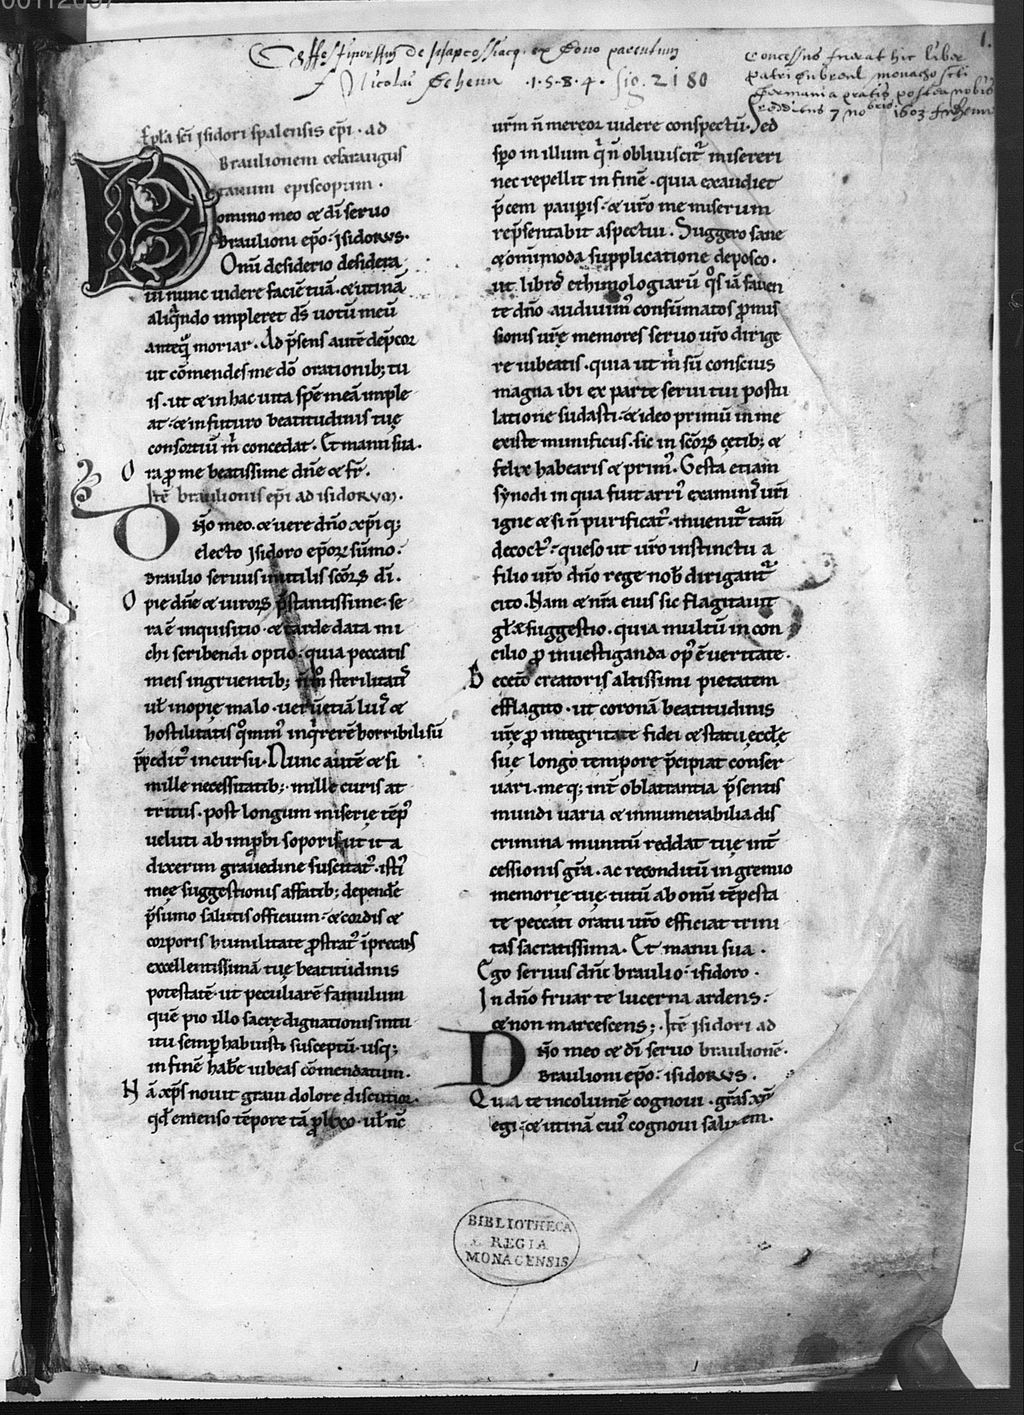 1.
de ex dono parentum
Nicolai 1.5.8.4. 2180
Concessus fuerat hic liber
patri monacho sci
germani a pratis postea nobis
redditus 7 nobris 1603
Epla sci isidori spalensis epi · ad
Braulionem cesaraugus
tanum episcopum ·
Domino meo & di seruo
Braulioni epo · isidorus ·
Omi desiderio desidera
ui nunc uidere facie tuā · & utinā
aliqndo impleret ds uotū meū
anteqͣ moriar · Ad psens autē depcor
ut cōmendes me dō orationib; tu
is · ut & in hac uita spē meā imple
at · & in futuro beatitudinis tuę
consortiū m concedat · Et manu sua ·
O ra p me beatissime dn̄e & fr ·
Itē braulionis epi ad isidorum ·
Dn̄o meo · & uere dn̄o xpi q;
electo isidoro eporū sūmo ·
Braulio seruus inutilis scōrū di ·
O pie dn̄e & uirorū pstantissime · se
ra ē inquisitio · & tarde data mi
chi scribendi optio · quia peccatis
meis ingruentib; sterilitatis
ul inopię malo · uerū etiā luis &
hostilitatis inqrerē horribili sū
ppeditus incursu · Nunc autē & si
mille necessitatib; · mille curis at
tritus · post longum miserię tēpus
ueluti ab improbi soporis ut ita
dixerim grauedine suscitatus · istis
meę suggestionis affatib; dependē
psumo salutis officium · & cordis &
corporis humilitate prostratus ip̄recans
excellentissimā tuę beatitudinis
potestatē · ut peculiarē famulum
quē pio illo sacrę dignationis intu
itu semp habuisti susceptū · usq;
in finē habere iubeas cōmendatum ·
N ā xps nouit graui dolore discutior ·
qd emenso tēpore tā prolixo · ul nc
urm n̄ mereor uidere conspectū · Sed
spo in illum q n̄ obliuiscit misereri
nec repellit in finē · quia exaudiet
pcem pauperis · & uro me miserum
rep̄sentabit aspectui · Suggero sane
& omimoda supplicatione deposco ·
ut libros ethimologiarū qs iā fauen
te dn̄o audiuimus consūmatos promis
sionis urę memores seruo uro dirige
re iubeatis · quia ut m sū conscius
magna ibi ex parte serui tui postu
latione sudasti · & ideo primū in me
existe munificus · sic in scōrū cętib; &
felix habearis & primus · Gesta etiam
synodi in qua fuit arri examinis uri
igne & si n̄ purificatus · inuenitur tam̄
decoctus · queso ut uro instinctu a
filio uro dn̄o rege nob dirigant
cito · Nam & nr̄a eius sic flagitauit
glā suggestio · quia multū in con
cilio p inuestiganda opus ē ueritate ·
D e cetō creatoris altissimi pietatem
efflagito · ut coronā beatitudinis
urę p integritate fidei & statu eccle
suę longo tempore pcipiat conser
uari · me q; int oblatrantia psentis
mundi uaria & innumerabilia dis
crimina munitū reddat tuę int
cessionis grā · ac reconditū in gremio
memorię tuę tutū ab omi tēpesta
te peccati oratu uro efficiat trini
tas sacratissima · Et manu sua ·
Ego seruus dn̄i braulio · isidoro ·
In dn̄o fruar te lucerna ardens :
& non marcescens ; · Itē isidori ad
Dn̄o meo & di seruo braulionē ·
Braulioni epo · isidorus ·
Quia te incolumē cognoui · grās xpo
egi · & utinā cuius cognoui salutem ·
BIBLIOTHECA
REGIA
MONACENSIS